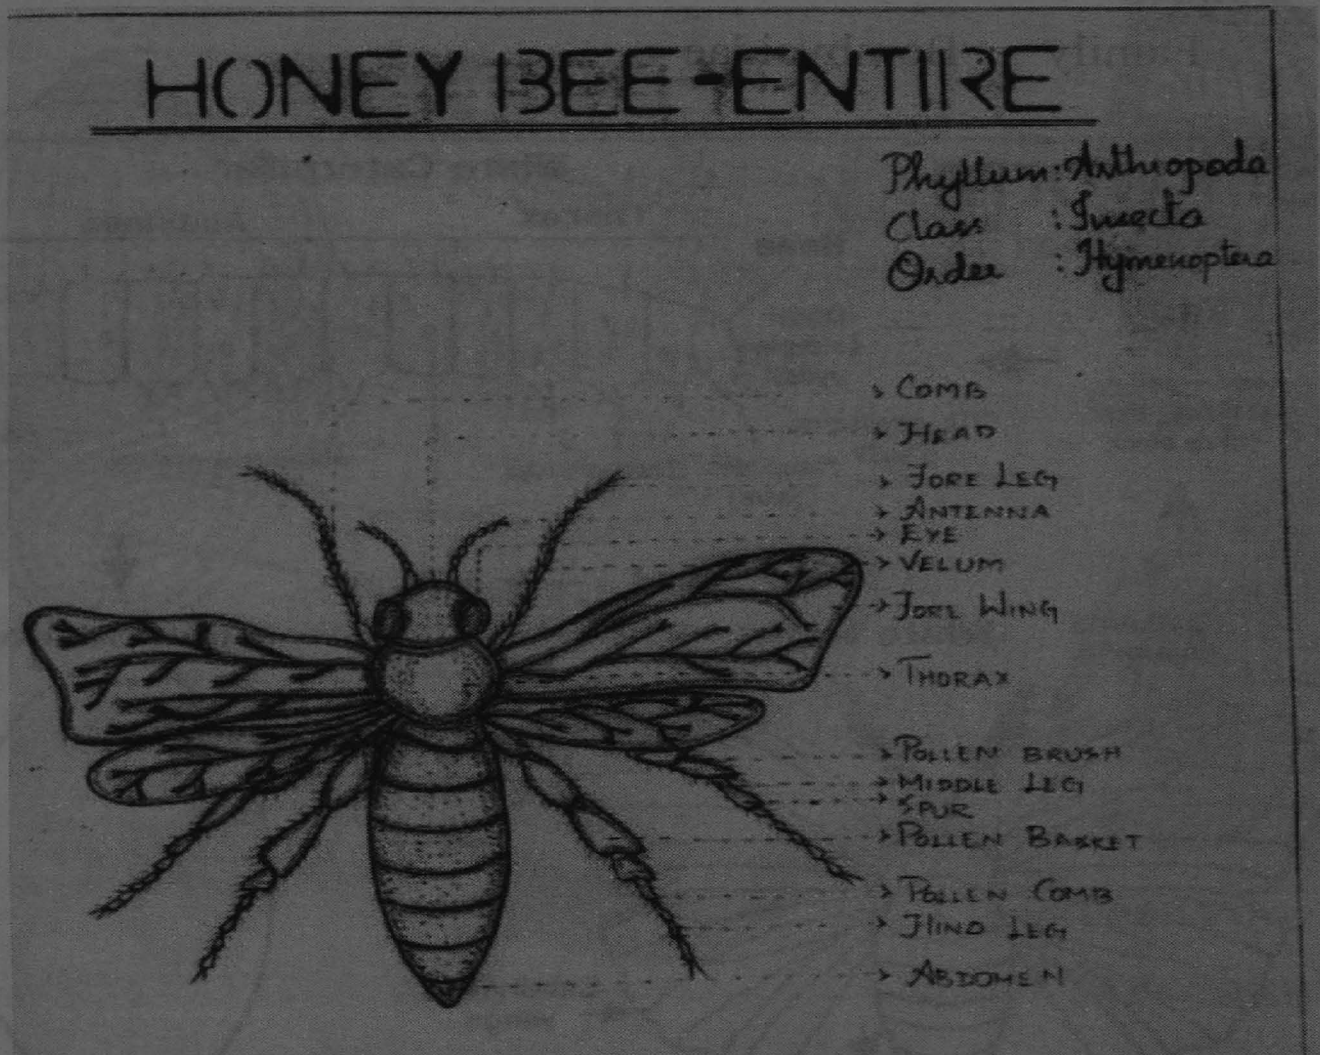 HONEY BEE-ENTIRE
Phyllum: Arthropoda
Class : Insecta
Order : Hymenoptera
COMB
HEAD
FORE LEG
ANTENNA
EYE
VELUM
FORE WING
THORAX
POLLEN BRUSH
MIDDLE LEG
SPUR
POLLEN BASKET
POLLEN COMB
HIND LEG
ABDOMEN